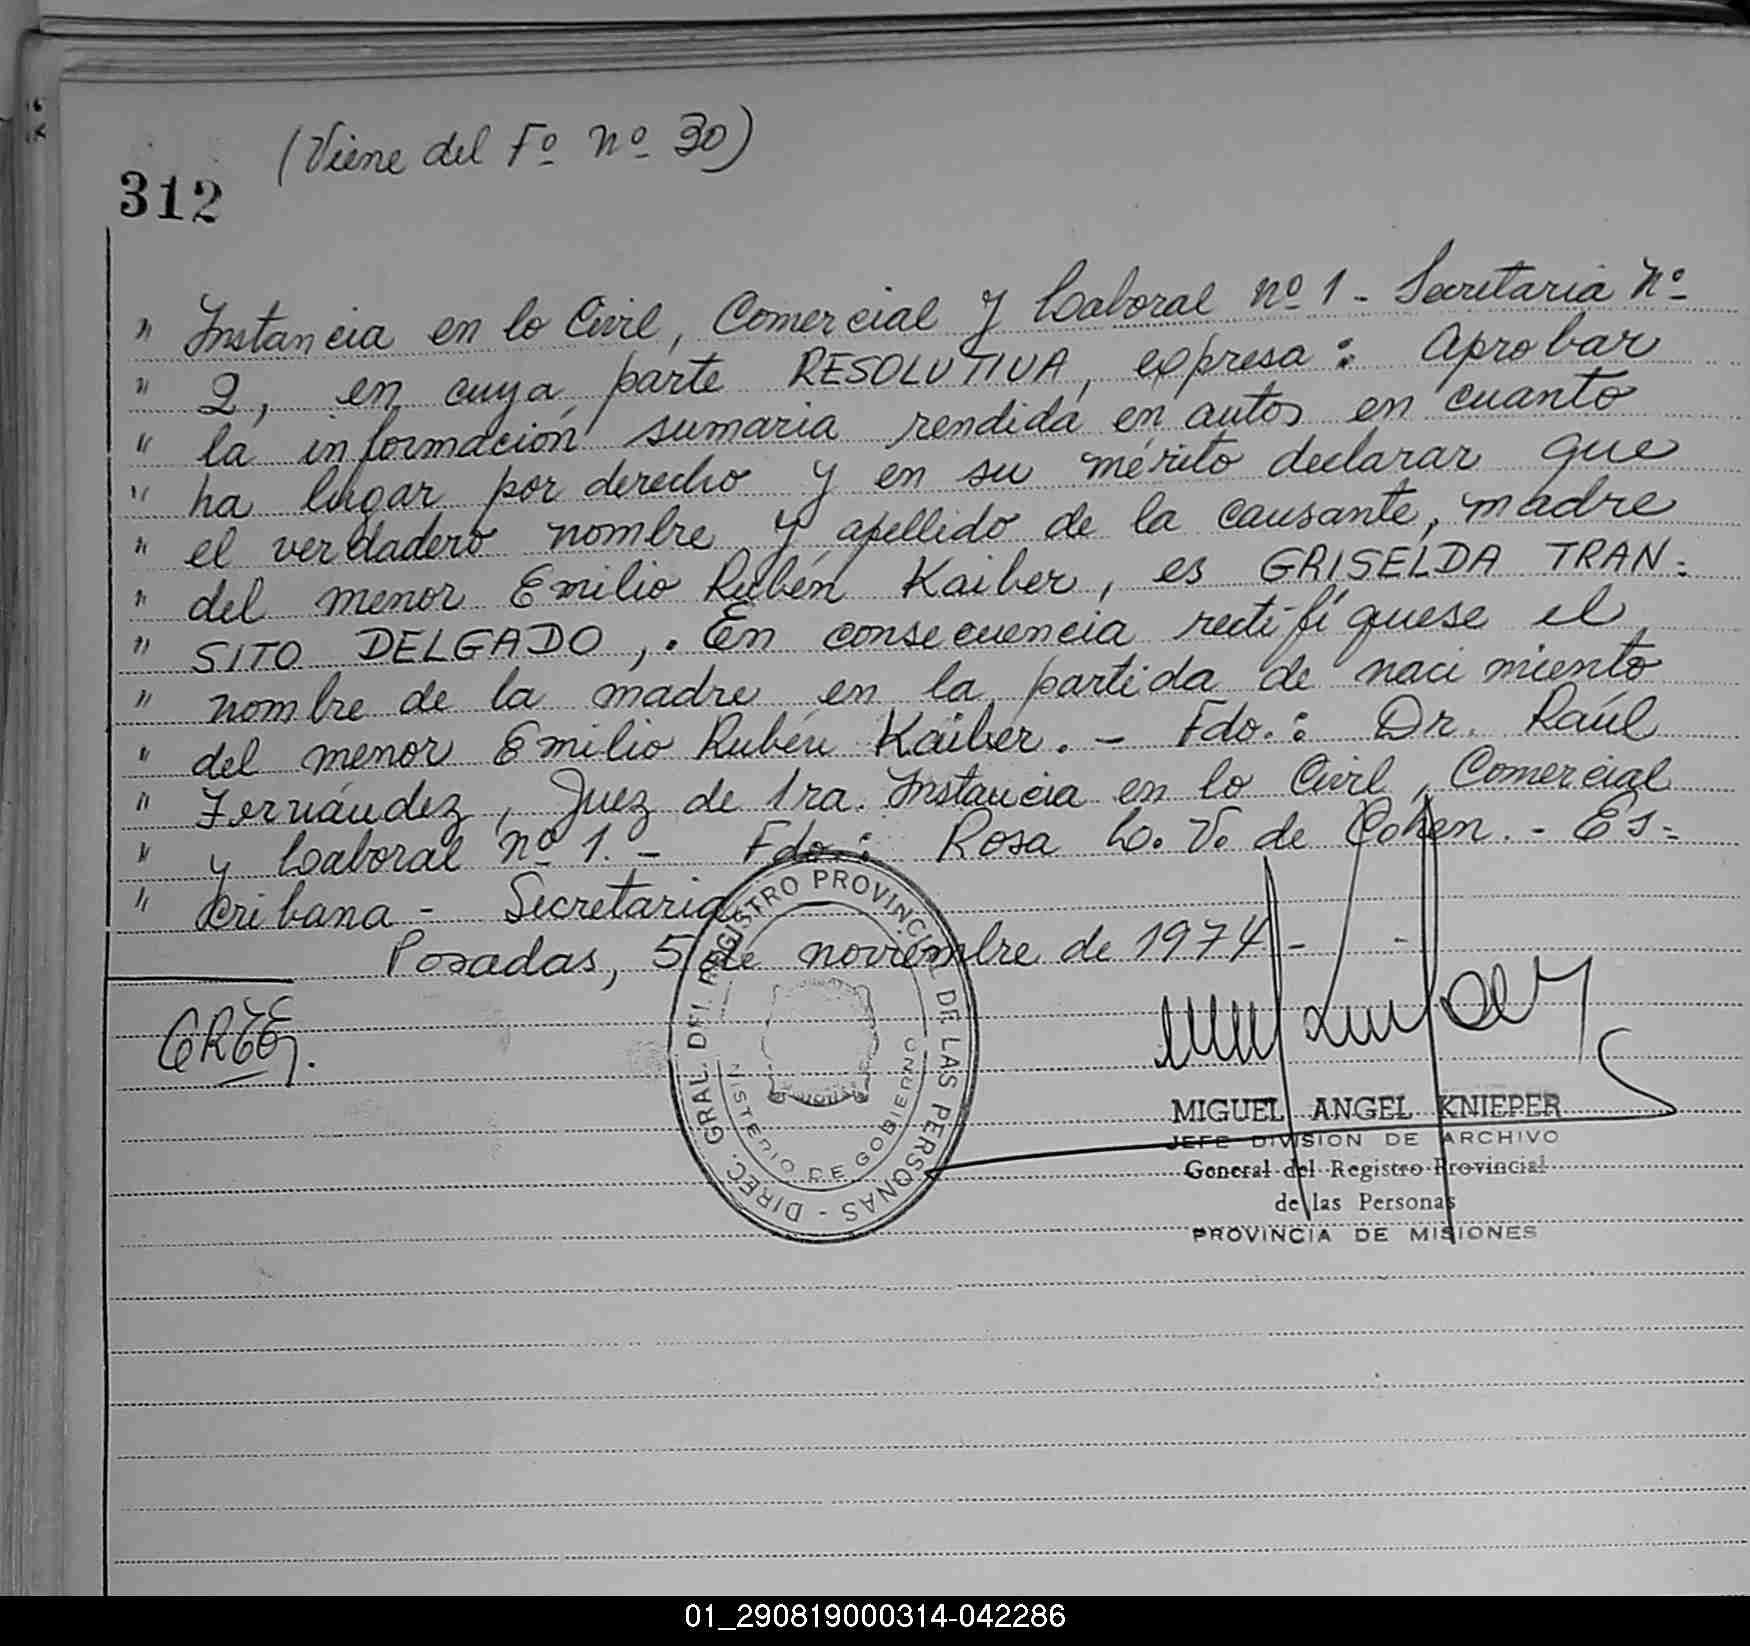 (Viene del Fº nº 30)
312
" Instancia en lo Civil, Comercial y Laboral nº 1 - Secretaria Nº
" 2, en cuya parte RESOLUTIVA, expresa: Aprobar
" la información sumaria rendida en autos en cuanto
" ha lugar por derecho y en su mérito declarar que
" el verdadero nombre y apellido de la causante, madre
" del menor Emilio Rubén Kaiber, es GRISELDA TRAN-
" SITO DELGADO,. En consecuencia rectifíquese el
" nombre de la madre en la partida de nacimiento
" del menor Emilio Rubén Kaiber. - Fdo.: Dr. Raúl
" Fernández, Juez de 1ra. Instancia en lo Civil, Comercial
" y Laboral nº 1. - Fdo.: Rosa L. V. de Cohen. - Es=
" cribana - Secretaria
Posadas, 5 de noviembre de 1974 - -
DIREC. GRAL. DEL REGISTRO PROVINCIAL DE LAS PERSONAS -
MINISTERIO DE GOBIERNO
MIGUEL ANGEL KNIEPER
JEFE DIVISION DE ARCHIVO
General del Registro Provincial
de las Personas
PROVINCIA DE MISIONES
01_290819000314-042286